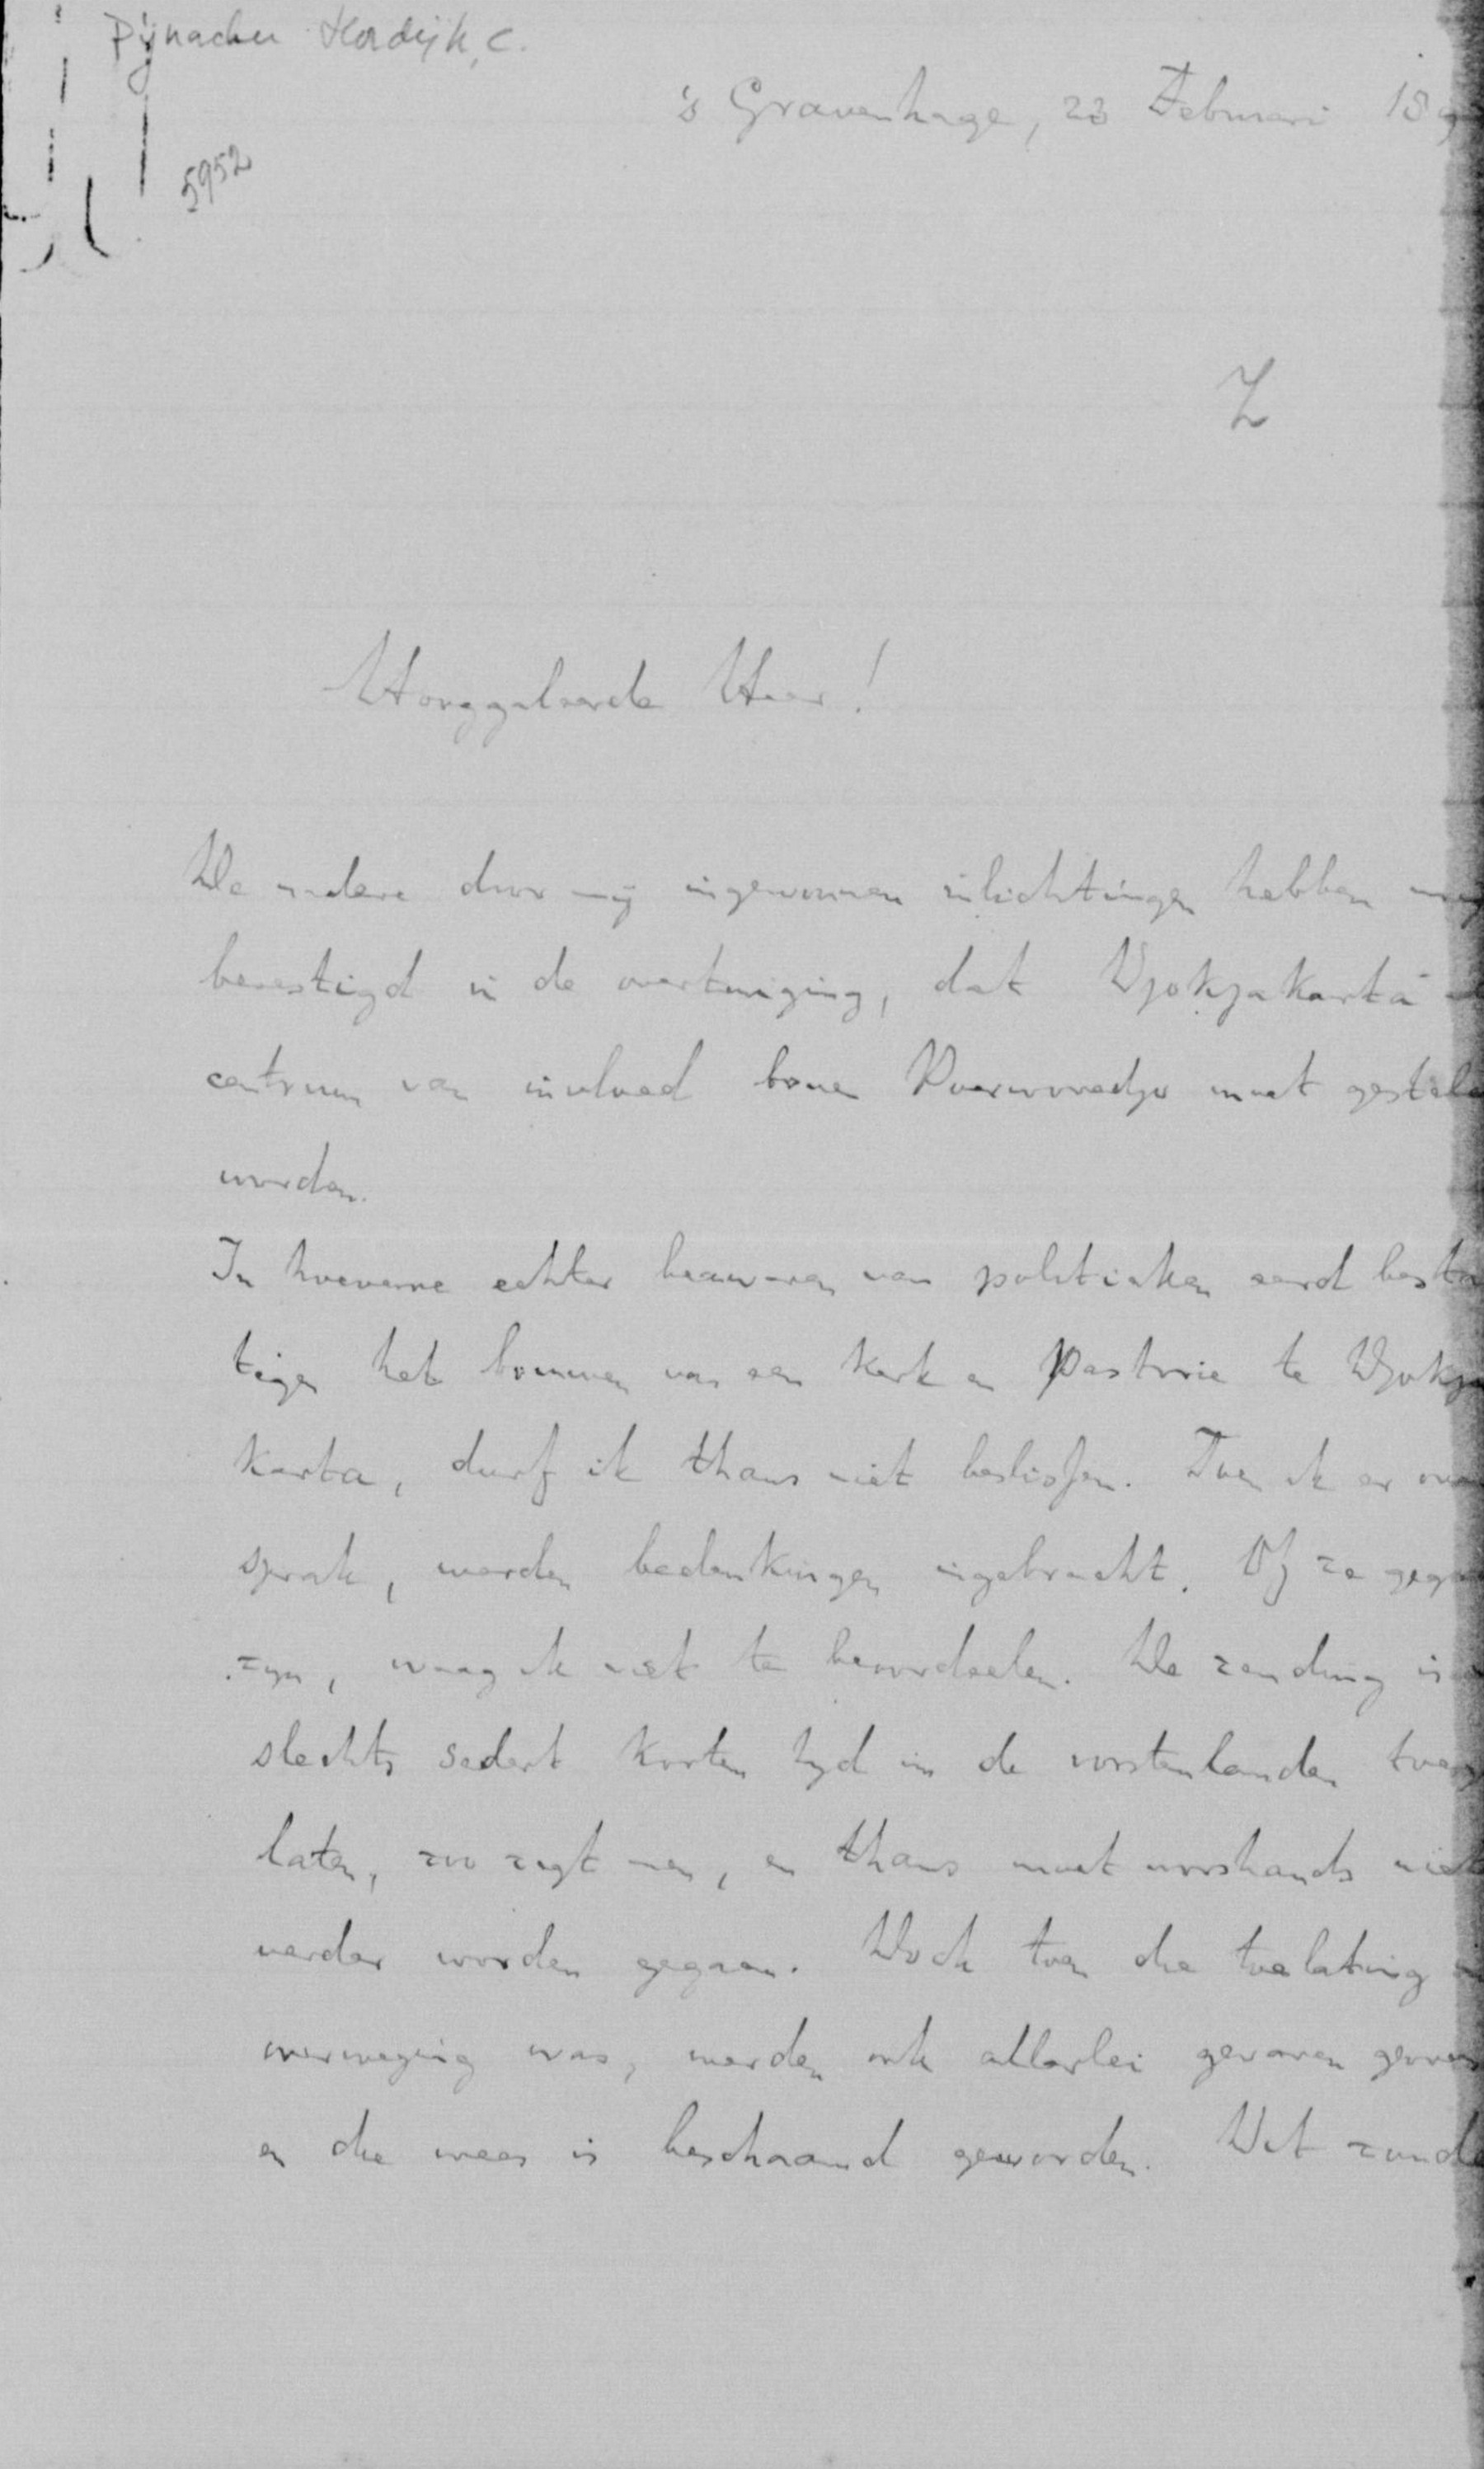 Pijnacker Hordijk, C.
's Gravenhage, 23 Februari 189
5952
Z
Hooggeleerde Heer!
De nadere door mij ingewonnen inlichtingen hebben mij
bevestigd in de overtuiging, dat Djokjakarta
centrum van invloed boven Poerworedjo moet gesteld
worden.
In hoeverre echter bezwaren van politieken aard besta
tegen het bouwen van een kerk en pastorie te Djokja
karta, durf ik thans niet beslissen. Toen ik er over
sprak, werden bedenkingen ingebracht. Of ze gegr
zijn, waag ik niet te beoordeelen. De zending is
slechts sedert korten tijd in de vorstenlanden toege
laten, zoo zegt men, en thans moet voorshands niet
verder worden gegaan. Doch toen die toelating in
overweging was, werden ook allerlei gevaren gevrees
en die vrees is beschaamd geworden. Dit zonde